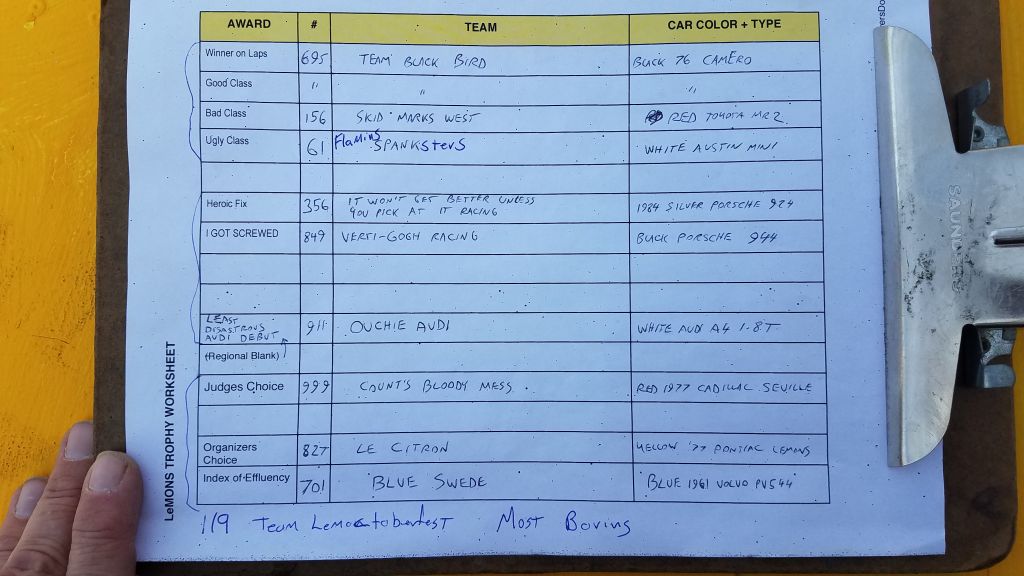 AWARD # TEAM CAR COLOR + TYPE
Winner on Laps 695 TEAM BLACK BIRD BLACK 76 CAMERO
Good Class " " "
Bad Class 156 SKID MARKS WEST RED TOYOTA MR2
Ugly Class 61 Flaming SPANKsters WHITE AUSTIN MINI
Heroic Fix 356 IT WON'T GET BETTER UNLESS
YOU PICK AT IT RACING 1984 SILVER PORSCHE 924
I GOT SCREWED 849 VERTI-GOGH RACING BLACK PORSCHE 944
LEAST
DISASTROUS
AUDI DEBUT 911 OUCHIE AUDI WHITE AUDI A4 1.8T
(Regional Blank)
Judges Choice 999 COUNT'S BLOODY MESS. RED 1977 CADILLAC SEVILLE
Organizers
Choice 827 LE CITRON YELLOW '77 PONTIAC LEMANS
Index of Effluency 701 BLUE SWEDE BLUE 1961 VOLVO PV544
119 Team Lemoctoberfest Most Boring
LeMONS TROPHY WORKSHEET
SAUNDERS